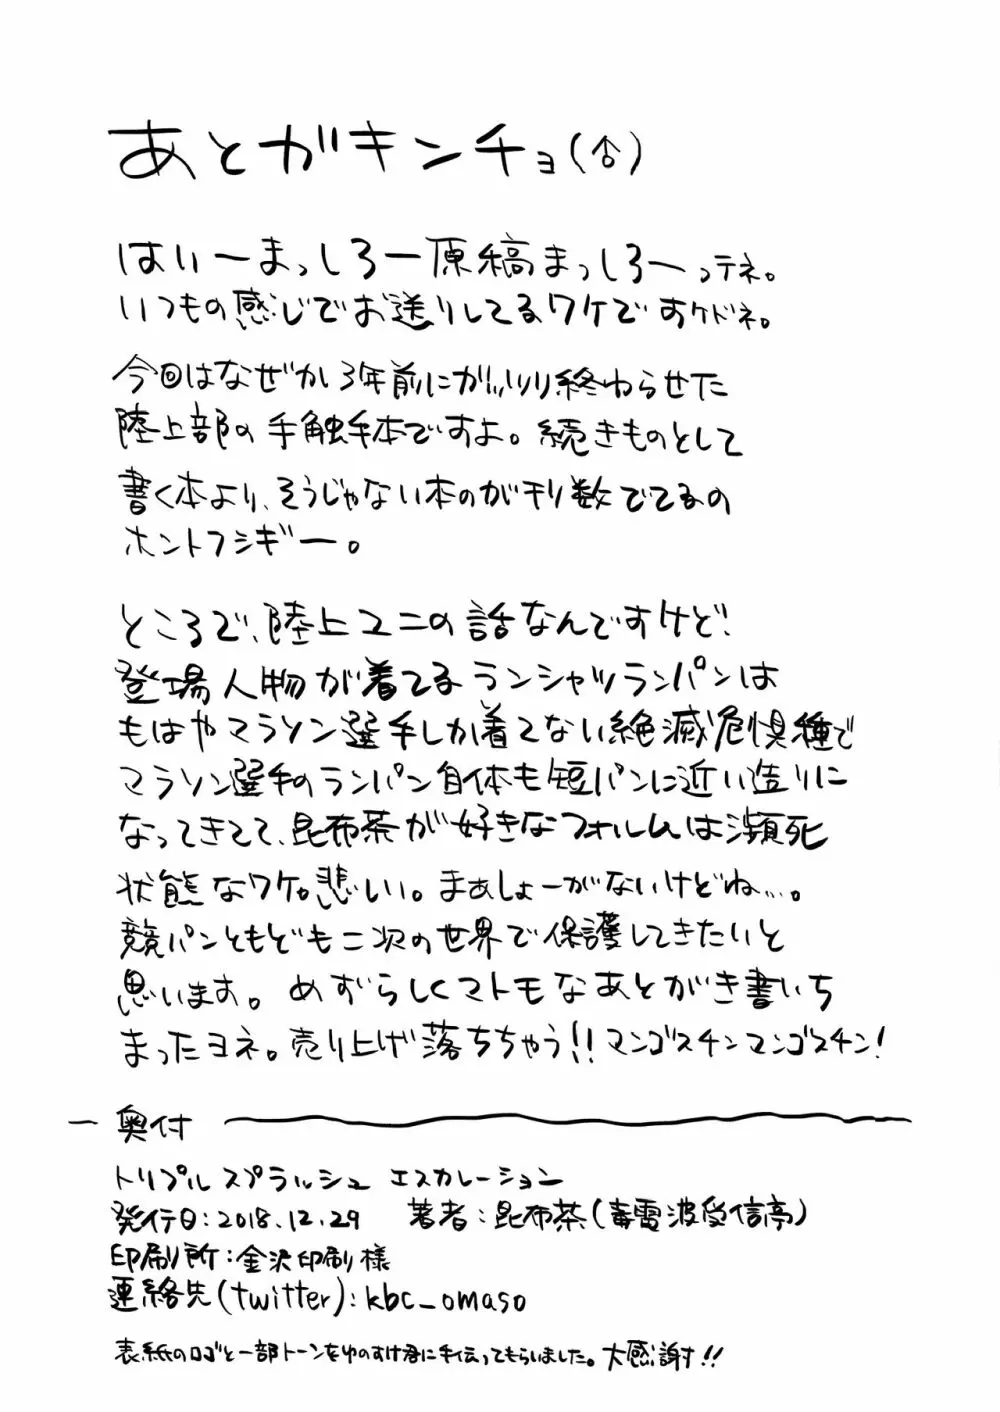 あとがキンチョ(♂)
はいーまっしろー原稿まっしろーってネ。
いつもの感じでお送りしてるワケですケドネ。
今回はなぜか3年前にガッツリ終わらせた
陸上部の手触手本ですよ。続きものとして
書く本より、そうじゃない本のが刊数でてるの
ホントフシギー。
ところで、陸上ユニの話なんですけど!
登場人物が着てるランシャツランパンは
もはやマラソン選手しか着てない絶滅危惧種で
マラソン選手のランパン自体も短パンに近い造りに
なってきてて、昆布茶が好きなフォルムは瀕死
状態なワケ。悲しい。まぁしょーがないけどね...。
競パンともども二次の世界で保護してきたいと
思います。めずらしくマトモなあとがき書いち
まったヨネ。売り上げ落ちちゃう!!マンゴスチンマンゴスチン!
奥付
トリプル スプラッシュ エスカレーション
発行日:2018.12.29 著者:昆布茶(毒電波受信亭)
印刷所:金沢印刷様
連絡先(twitter):kbc_omaso
表紙のロゴと一部トーンをゆのすけ君に手伝ってもらいました。大感謝!!